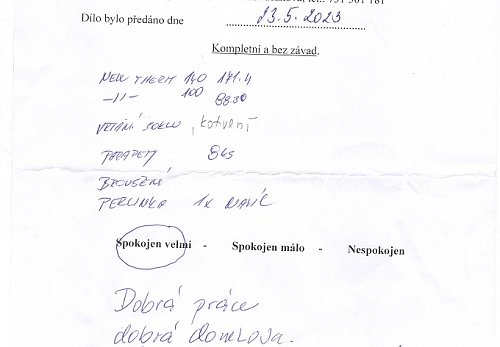 Dílo bylo předáno dne 23.5.2023
Kompletní a bez závad.
NEW THERM 140 171.4
-//- 100 88.30
VETÁNÍ SOKLU, kotvení
PARAPETY 8ks
BROUŠENÍ
PERLINKA 1x NAVÍC
Spokojen velmi - Spokojen málo - Nespokojen
Dobrá práce
dobrá domluva.